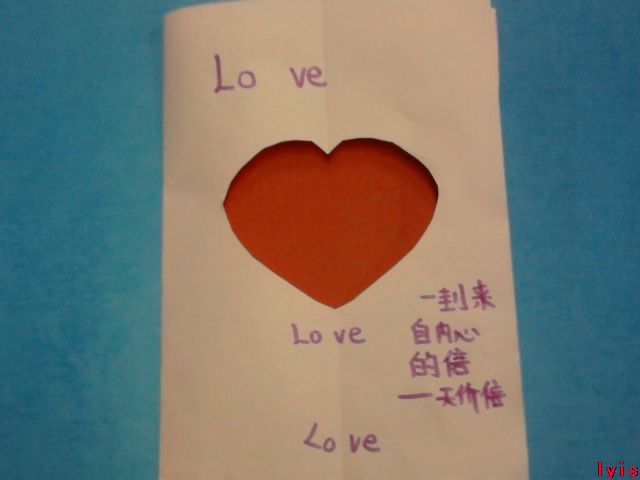 Lo ve
Lo ve
一封来
自内心
的信
一天价信
Lo ve
lyis